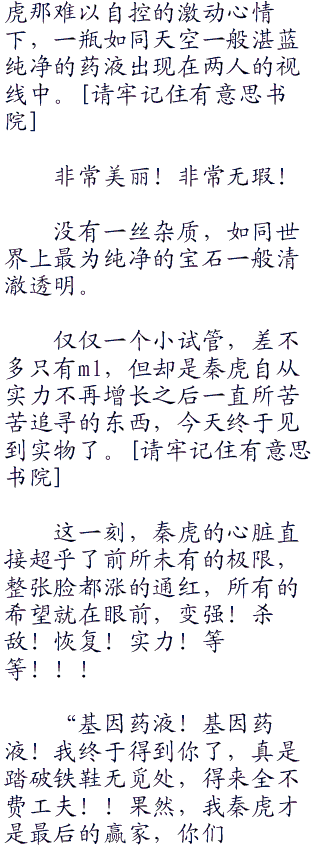 虎那难以自控的激动心情
下，一瓶如同天空一般湛蓝
纯净的药液出现在两人的视
线中。[请牢记住有意思书
院]
非常美丽！非常无瑕！
没有一丝杂质，如同世
界上最为纯净的宝石一般清
澈透明。
仅仅一个小试管，差不
多只有ml，但却是秦虎自从
实力不再增长之后一直所苦
苦追寻的东西，今天终于见
到实物了。[请牢记住有意思
书院]
这一刻，秦虎的心脏直
接超乎了前所未有的极限，
整张脸都涨的通红，所有的
希望就在眼前，变强！杀
敌！恢复！实力！等
等！！！
“基因药液！基因药
液！我终于得到你了，真是
踏破铁鞋无觅处，得来全不
费工夫！！果然，我秦虎才
是最后的赢家，你们